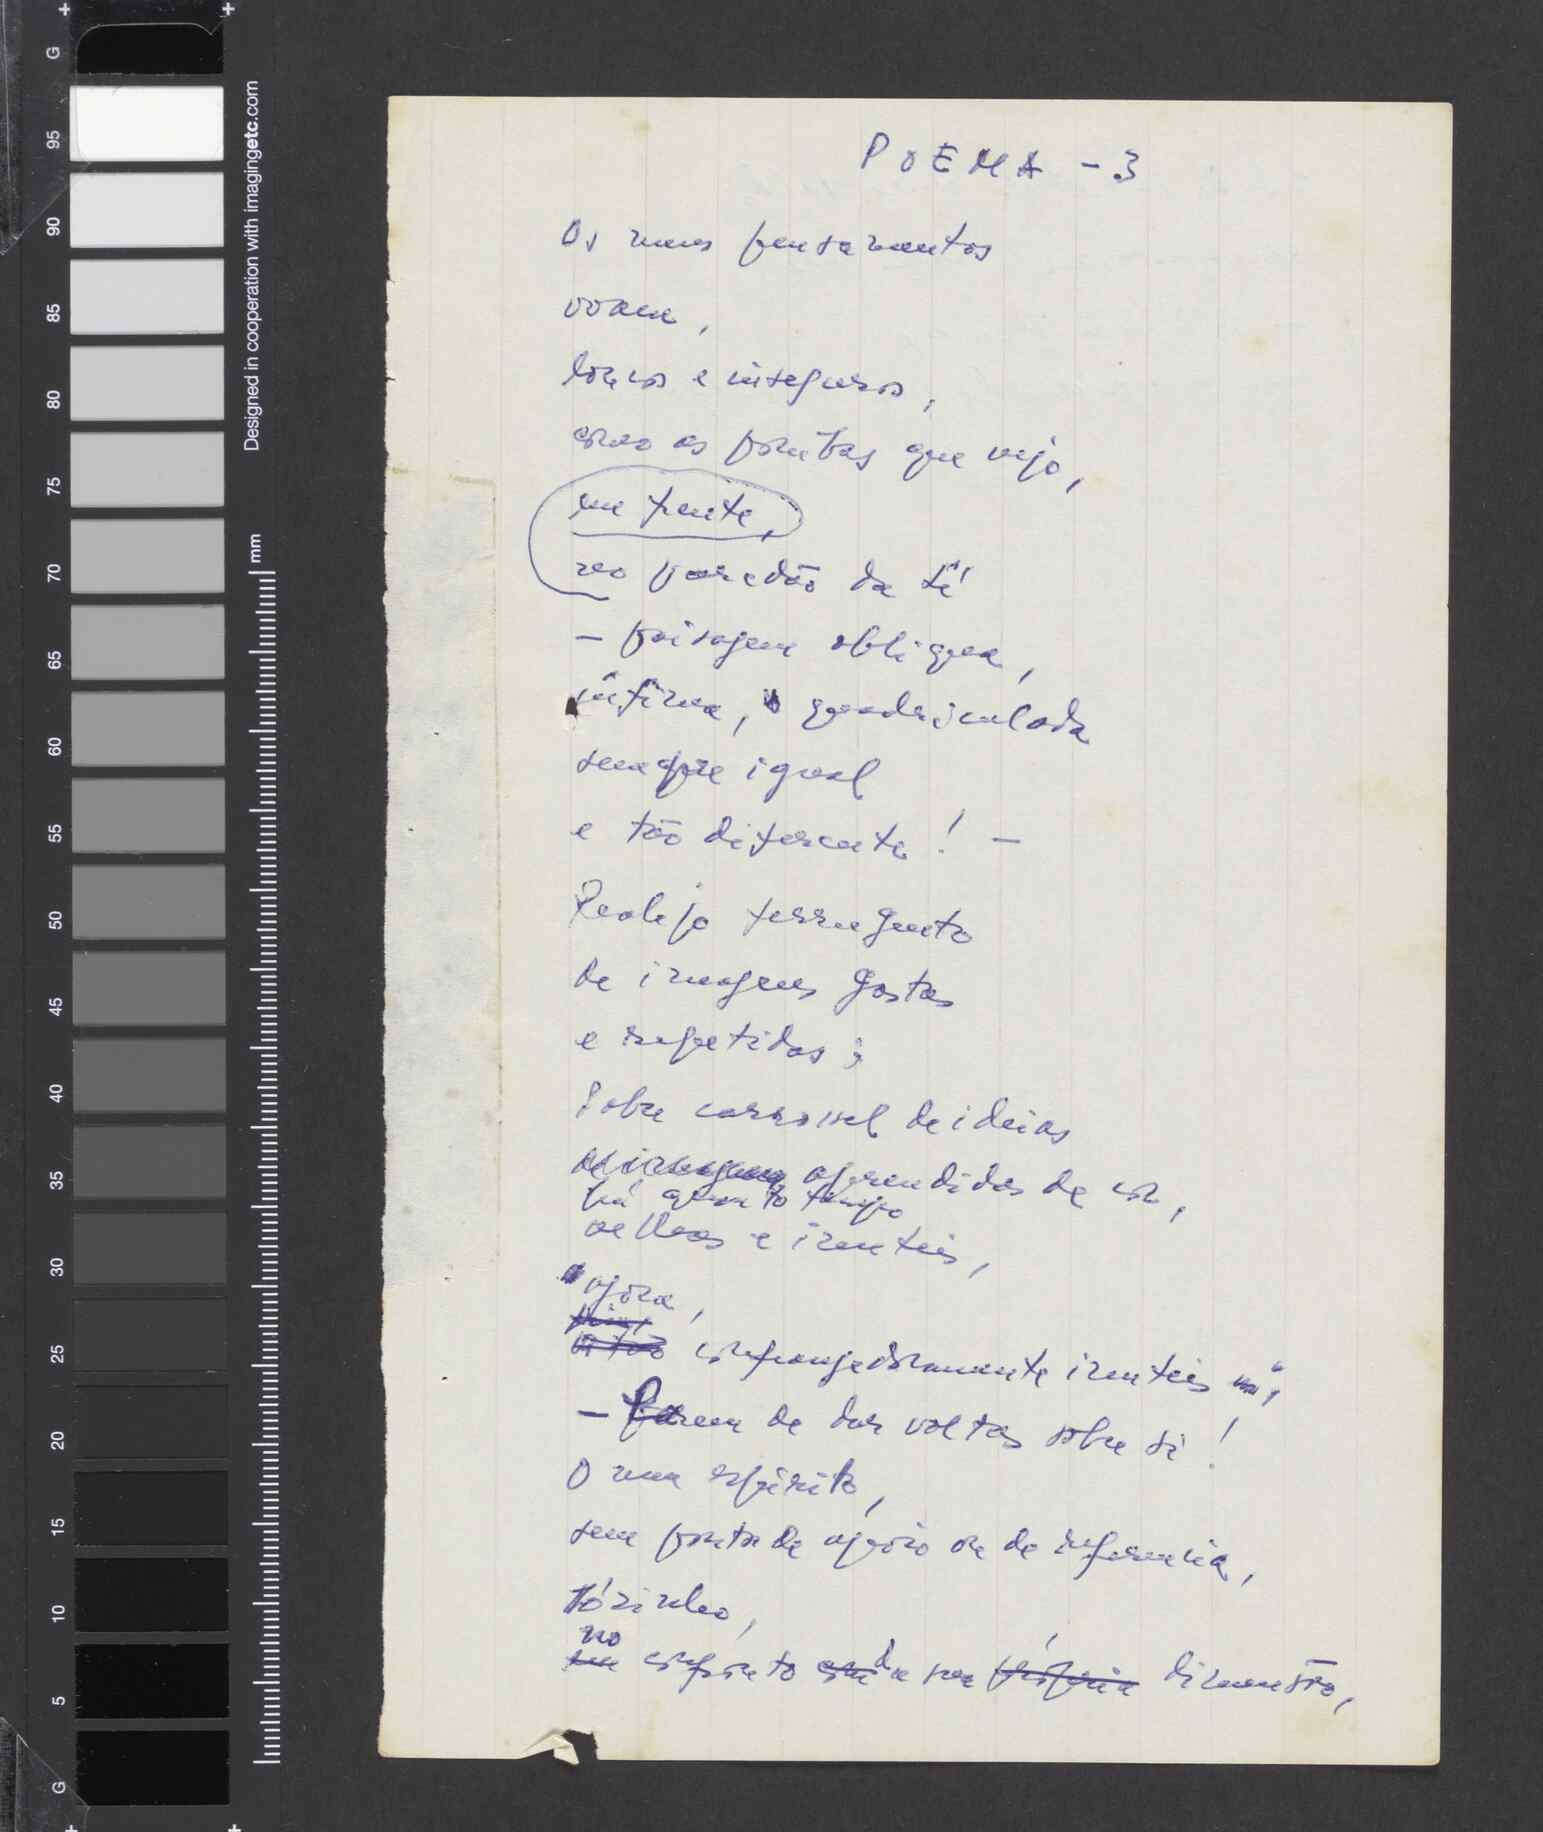 G
95
90
85
80
75
70
65
60
55
50
45
40
35
30
25
20
15
10
5
G
Designed in cooperation with imagingetc.com
mm
POEMA - 3
Os meus pensamentos
voam,
loucos e inseguros,
como as pombas que vejo,
em frente,
no paredão da Sé
- paisagem obliqua,
íntima, quadriculada
sempre igual
e tão diferente! -
Realejo ferrugento
de imagens gastas
e repetidas;
Pobre carrossel de ideias
de imagens aprendidas de cor,
há quanto tempo
velhas e inuteis,
agora,
então confrangedoramente inuteis
- Parem de dar voltas sobre si!
O meu espírito,
sem ponto de apoio ou de referencia,
sózinho,
no
em conforto da sua própria dimensão,